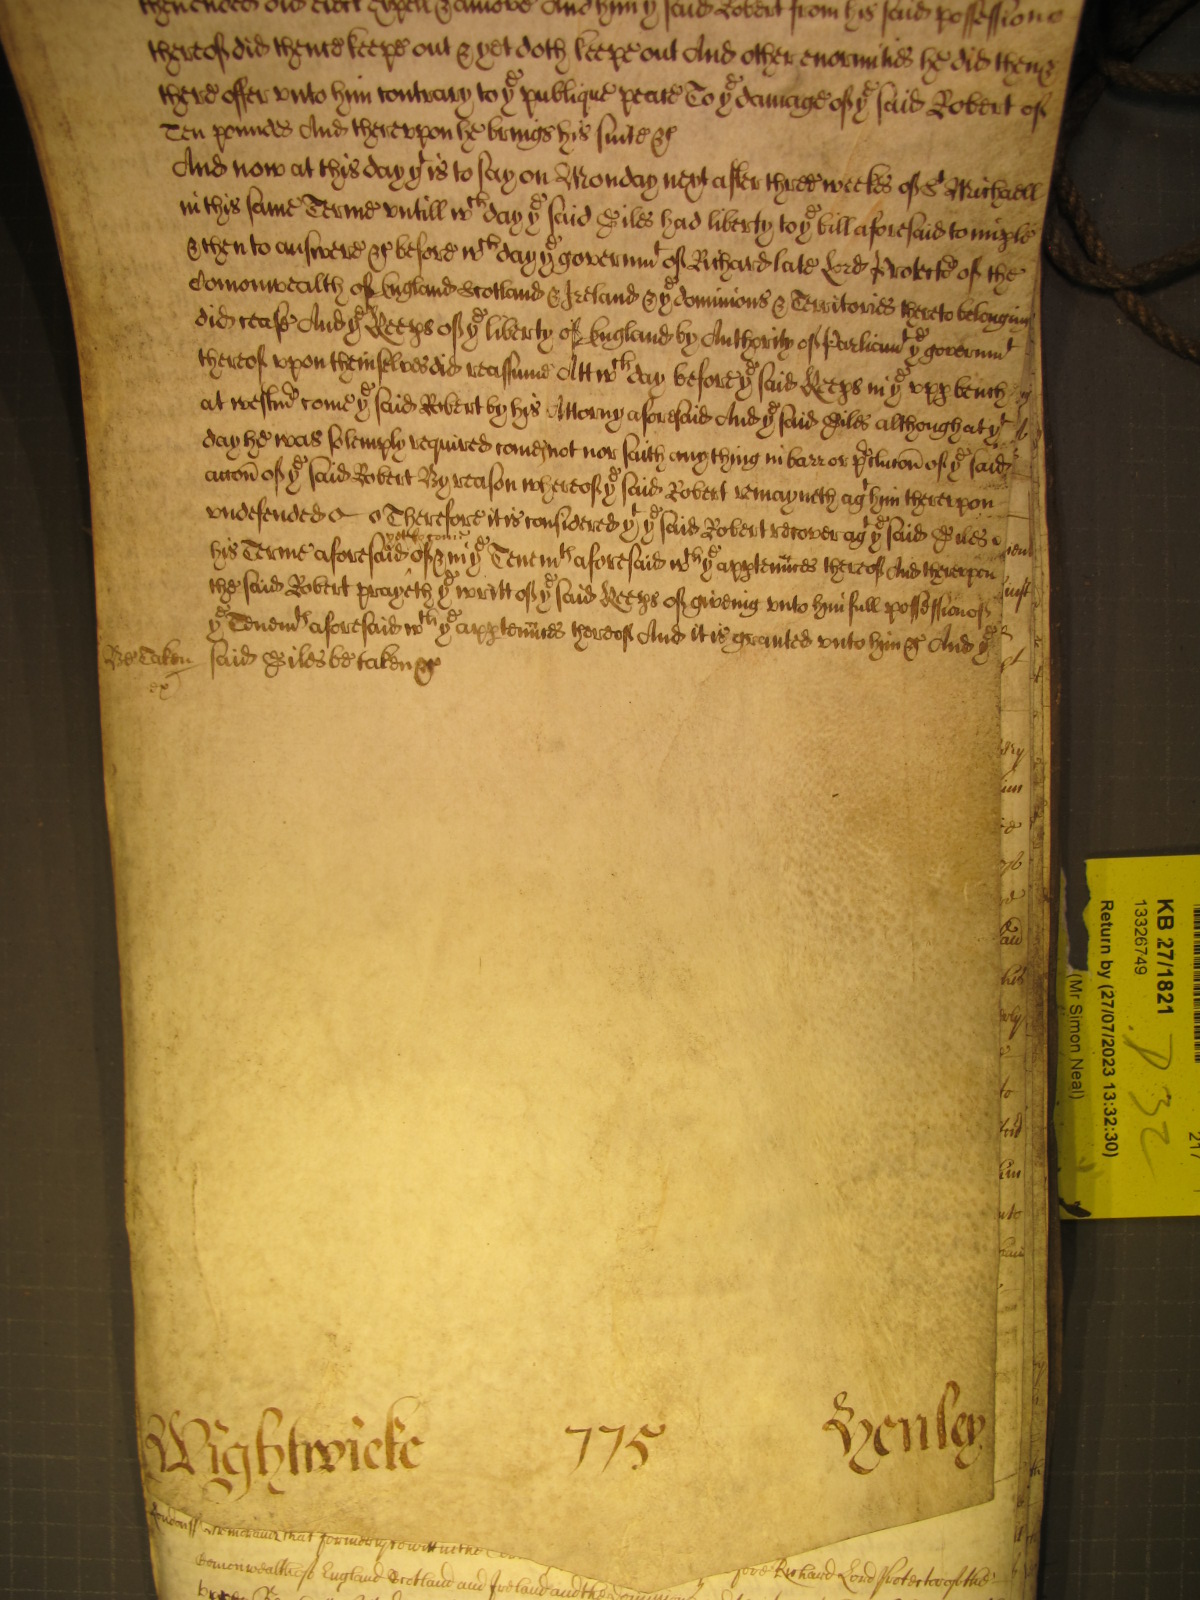 then ended did eject expell & amove And him yͤ said Robert from his said possession
thereof did thence keepe out & yet doth keepe out And other enormities he did then &
there offer unto him contrary to yͤ publique peace To yͤ damage of yͤ said Robert of
Ten poundes And thereupon he brings his suite &c
And now at this day yͭ is to say on Monday next after three weekes of Sͭ Michaell
in this same Terme untill wᶜʰ day yͤ said Giles had liberty to yͤ bill aforesaid to imple
& then to answere &c before wᶜʰ day yͤ governmͭ of Richard late Lord Protector of the
Comonwealth of England Scotland & Ireland & yͤ dominions & Territories thereto belonging
did cease And yͤ Keeps of yͤ liberty of England by Authority of Parliamͭ yͤ governmͭ
thereof upon themselves did reassume Att wᶜʰ day before yͤ said Keeps in yͤ upp bench
at Westmͬ come yͤ said Robert by his Attorny aforesaid And yͤ said Giles although at yͭ
day he was solemply required come not nor saith any thing in barr or pͬclucon of yͤ said
accon of yͤ said Robert By reason whereof yͤ said Robert remayneth agͭ him thereupon
undefended Therefore it is considered yͭ yͤ said Robert recover agͭ yͤ said Giles
his Terme aforesaid yett to come of & in yͤ Tenemᵗˢ aforesaid wᵗʰ yͤ apptennces thereof And thereupon
the said Robert prayeth yͤ writt of yͤ said Keeps of giveing unto him full possession of
yͤ Tenemᵗˢ aforesaid wᵗʰ yͤ apptennces thereof And it is granted unto him &c And yͤ
Be Taken said Giles be taken &c
ex
Wightwicke 775 Henley
London ss Memorand that formerly to witt in the
Comonwealth of England Scotland and Ireland and the Dominions
fore Richard Lord Protector of the
KB 27/1821
13326749
Return by (27/07/2023 13:32:30)
(Mr Simon Neal)
P 32
217